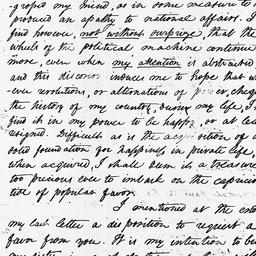 my friend, as in some measure to
produced an apathy to national affairs. I
find however, not without surprize, that the
whels of the political machine continue
more, even when my attention is abstracted
and this discov induces me to hope that w
ever revolutions, or alternations of cheq
the history of my country, during my life, I
find it in my power to be happy, or at lea
resigned. Difficult as is the acquisition of a
solid foundation for happiness in private life,
when acquired, I shall deem it a treasure
too precious ever to imbark on the capricio
tide of popular favor.
I mentioned at the
my last letter a disposition to request a
favor from you. It is my intention to be